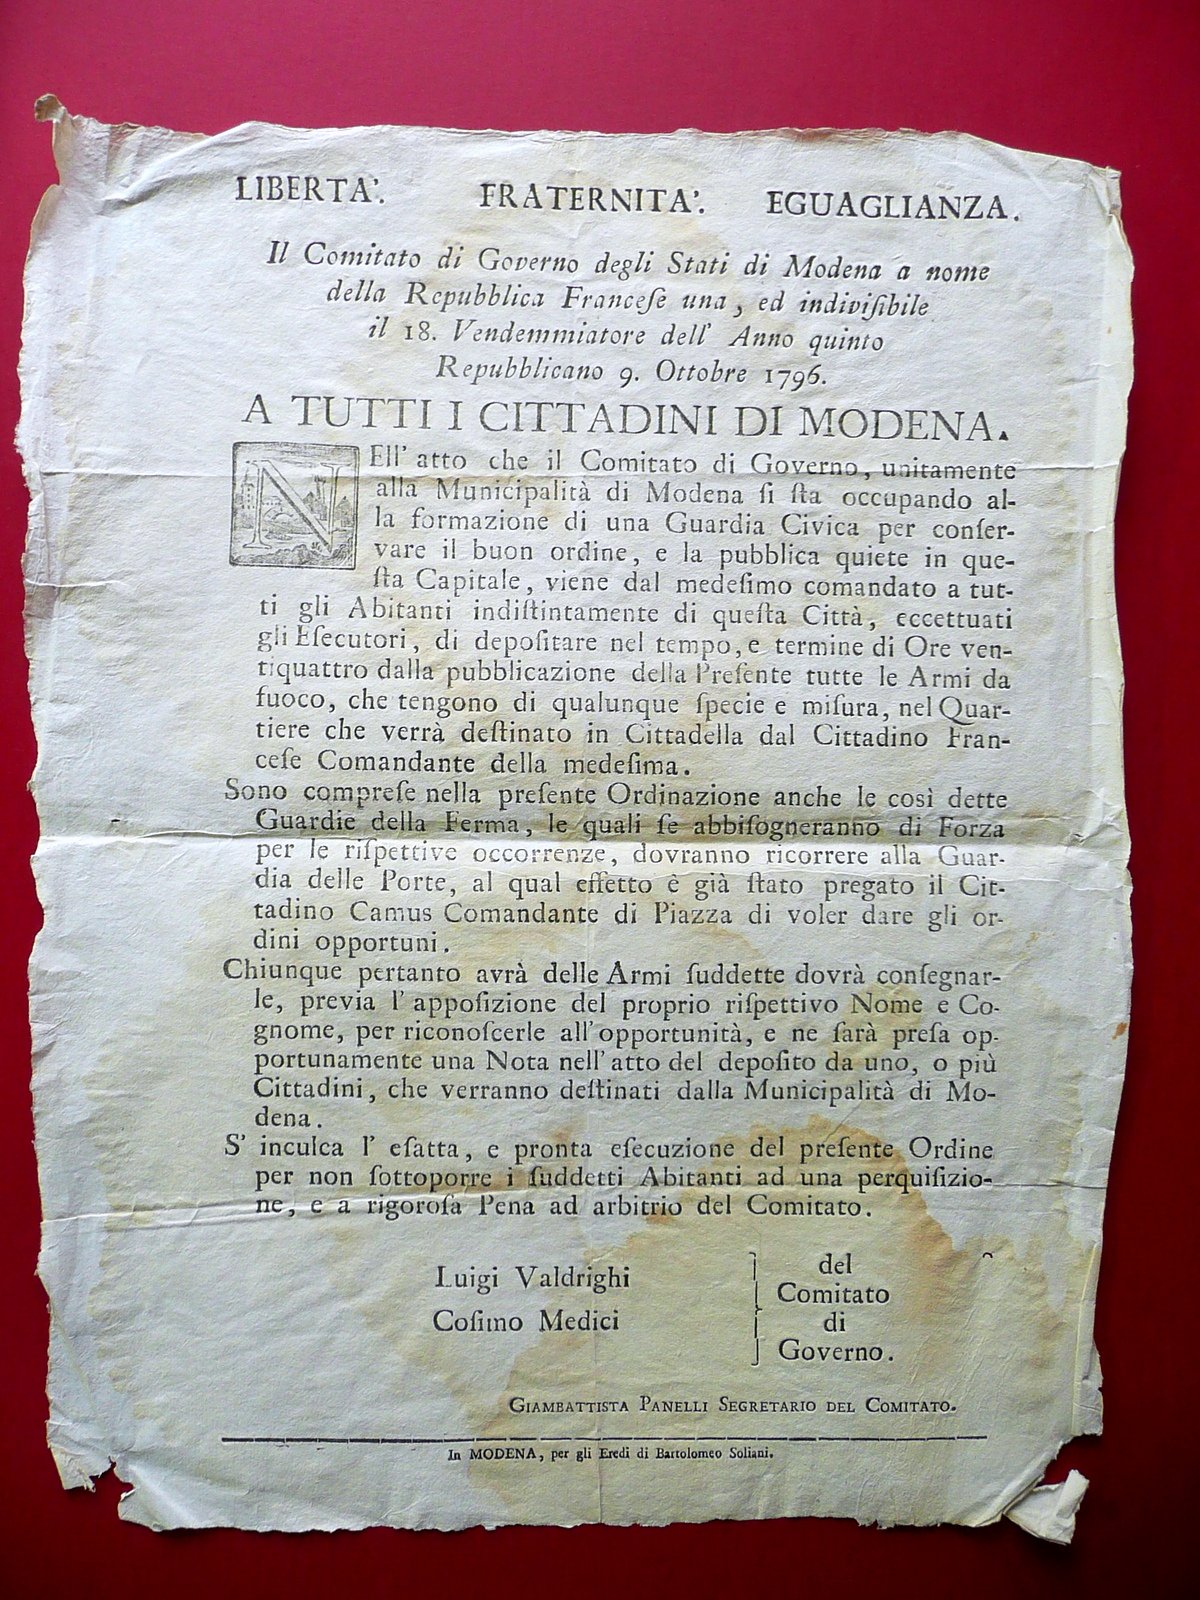 LIBERTA'. FRATERNITA'. EGUAGLIANZA.
Il Comitato di Governo degli Stati di Modena a nome
della Repubblica Franceſe una, ed indiviſibile
il 18. Vendemmiatore dell' Anno quinto
Repubblicano 9. Ottobre 1796.
A TUTTI I CITTADINI DI MODENA.
NEll' atto che il Comitato di Governo, unitamente
alla Municipalità di Modena ſi ſta occupando al-
la formazione di una Guardia Civica per conſer-
vare il buon ordine, e la pubblica quiete in que-
ſta Capitale, viene dal medeſimo comandato a tut-
ti gli Abitanti indiſtintamente di queſta Città, eccettuati
gli Eſecutori, di depoſitare nel tempo, e termine di Ore ven-
tiquattro dalla pubblicazione della Preſente tutte le Armi da
fuoco, che tengono di qualunque ſpecie e miſura, nel Quar-
tiere che verrà deſtinato in Cittadella dal Cittadino Fran-
ceſe Comandante della medeſima.
Sono compreſe nella preſente Ordinazione anche le così dette
Guardie della Ferma, le quali ſe abbiſogneranno di Forza
per le riſpettive occorrenze, dovranno ricorrere alla Guar-
dia delle Porte, al qual effetto è già ſtato pregato il Cit-
tadino Camus Comandante di Piazza di voler dare gli or-
dini opportuni.
Chiunque pertanto avrà delle Armi ſuddette dovrà conſegnar-
le, previa l' appoſizione del proprio riſpettivo Nome e Co-
gnome, per riconoſcerle all' opportunità, e ne ſarà preſa op-
portunamente una Nota nell' atto del depoſito da uno, o più
Cittadini, che verranno deſtinati dalla Municipalità di Mo-
dena.
S' inculca l' eſatta, e pronta eſecuzione del preſente Ordine
per non ſottoporre i ſuddetti Abitanti ad una perquiſizio-
ne, e a rigoroſa Pena ad arbitrio del Comitato.
Luigi Valdrighi
Coſimo Medici
del
Comitato
di
Governo.
GIAMBATTISTA PANELLI SEGRETARIO DEL COMITATO.
In MODENA, per gli Eredi di Bartolomeo Soliani.